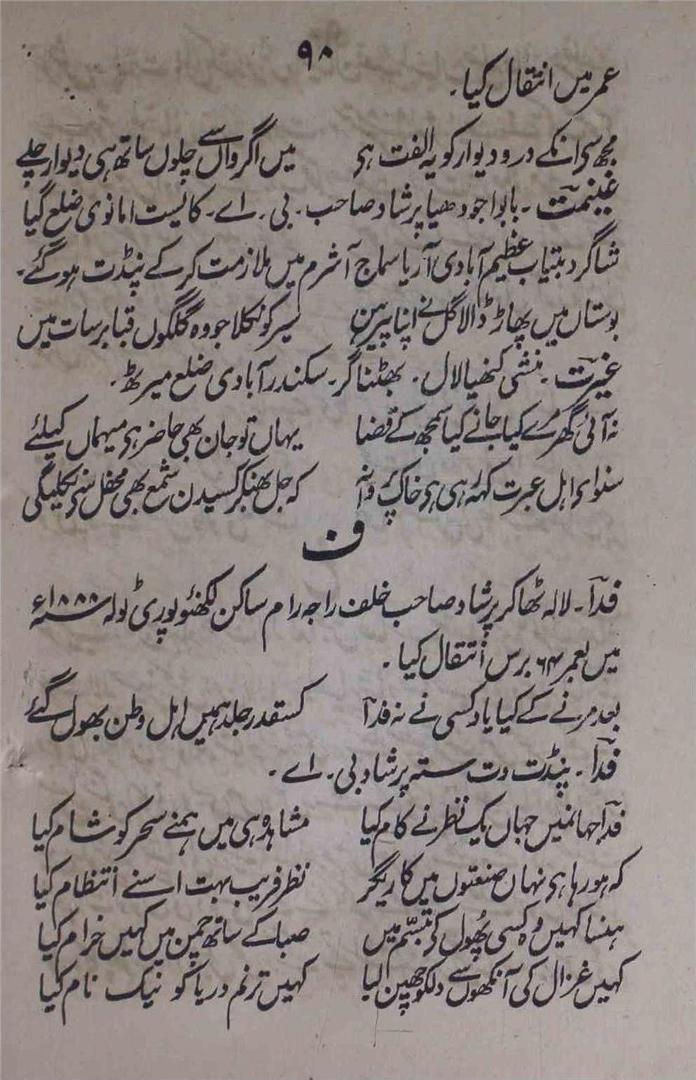 ۹۸
عمر میں انتقال کیا۔
مجھ سی انکے در و دیوار کو یہ الفت ہی میں اگر واں سے چلوں ساتھ ہی دیوار چلے
غنیمت۔ بابو اجودھیا پرشاد صاحب۔ بی۔ اے۔ کالیست امانوی ضلع گیا
شاگرد بیتاب عظیم آبادی آریا سماج آشرم میں ملازمت کر کے پنڈت ہو گئے۔
بوستاں میں پھاڑ ڈالا گل نے اپنا پیرہن سیر کو نکلا جو وہ گلگوں قبا برسات میں
غیرت۔ منشی کنھیا لال۔ بھٹناگر۔ سکندر آبادی ضلع میرٹھ۔
نہ آئی گھر مرے کیا جانے کیا سمجھ کے قضا یہاں تو جان بھی حاضر ہی میہماں کیلئے
سنو ای اہل عبرت کہہ رہی ہی خاک پروانہ کہ جل بھنکر کسیدن شمع بھی محفل سی نکلیگی
ف
فدا۔ لالہ ٹھاکر پرشاد صاحب خلف راجہ رام ساکن لکھنؤ پوری ٹولہ ۱۸۸۸ء
میں بعمر ۶۴ برس انتقال کیا۔
بعد مرنے کے کیا یاد کسی نے نہ فدا کسقدر جلد ہمیں اہل وطن بھول گئے
فدا۔ پنڈت وت ستہ پرشاد بی۔ اے۔
فدا جہانمیں جہاں یک نظر نے کام کیا مشاہدہ ہی میں ہمنے سحر کو شام کیا
کہ ہو رہا ہی نہاں صنعتوں میں کاریگر نظر فریب بہت اسنے انتظام کیا
ہنسا کہیں وہ کسی پھول کے تبسّم میں صبا کے ساتھ چمن میں کہیں خرام کیا
کہیں غزال کی آنکھوں سے دلکو چھین لیا کہیں ترنم دریا کو نیک نام کیا